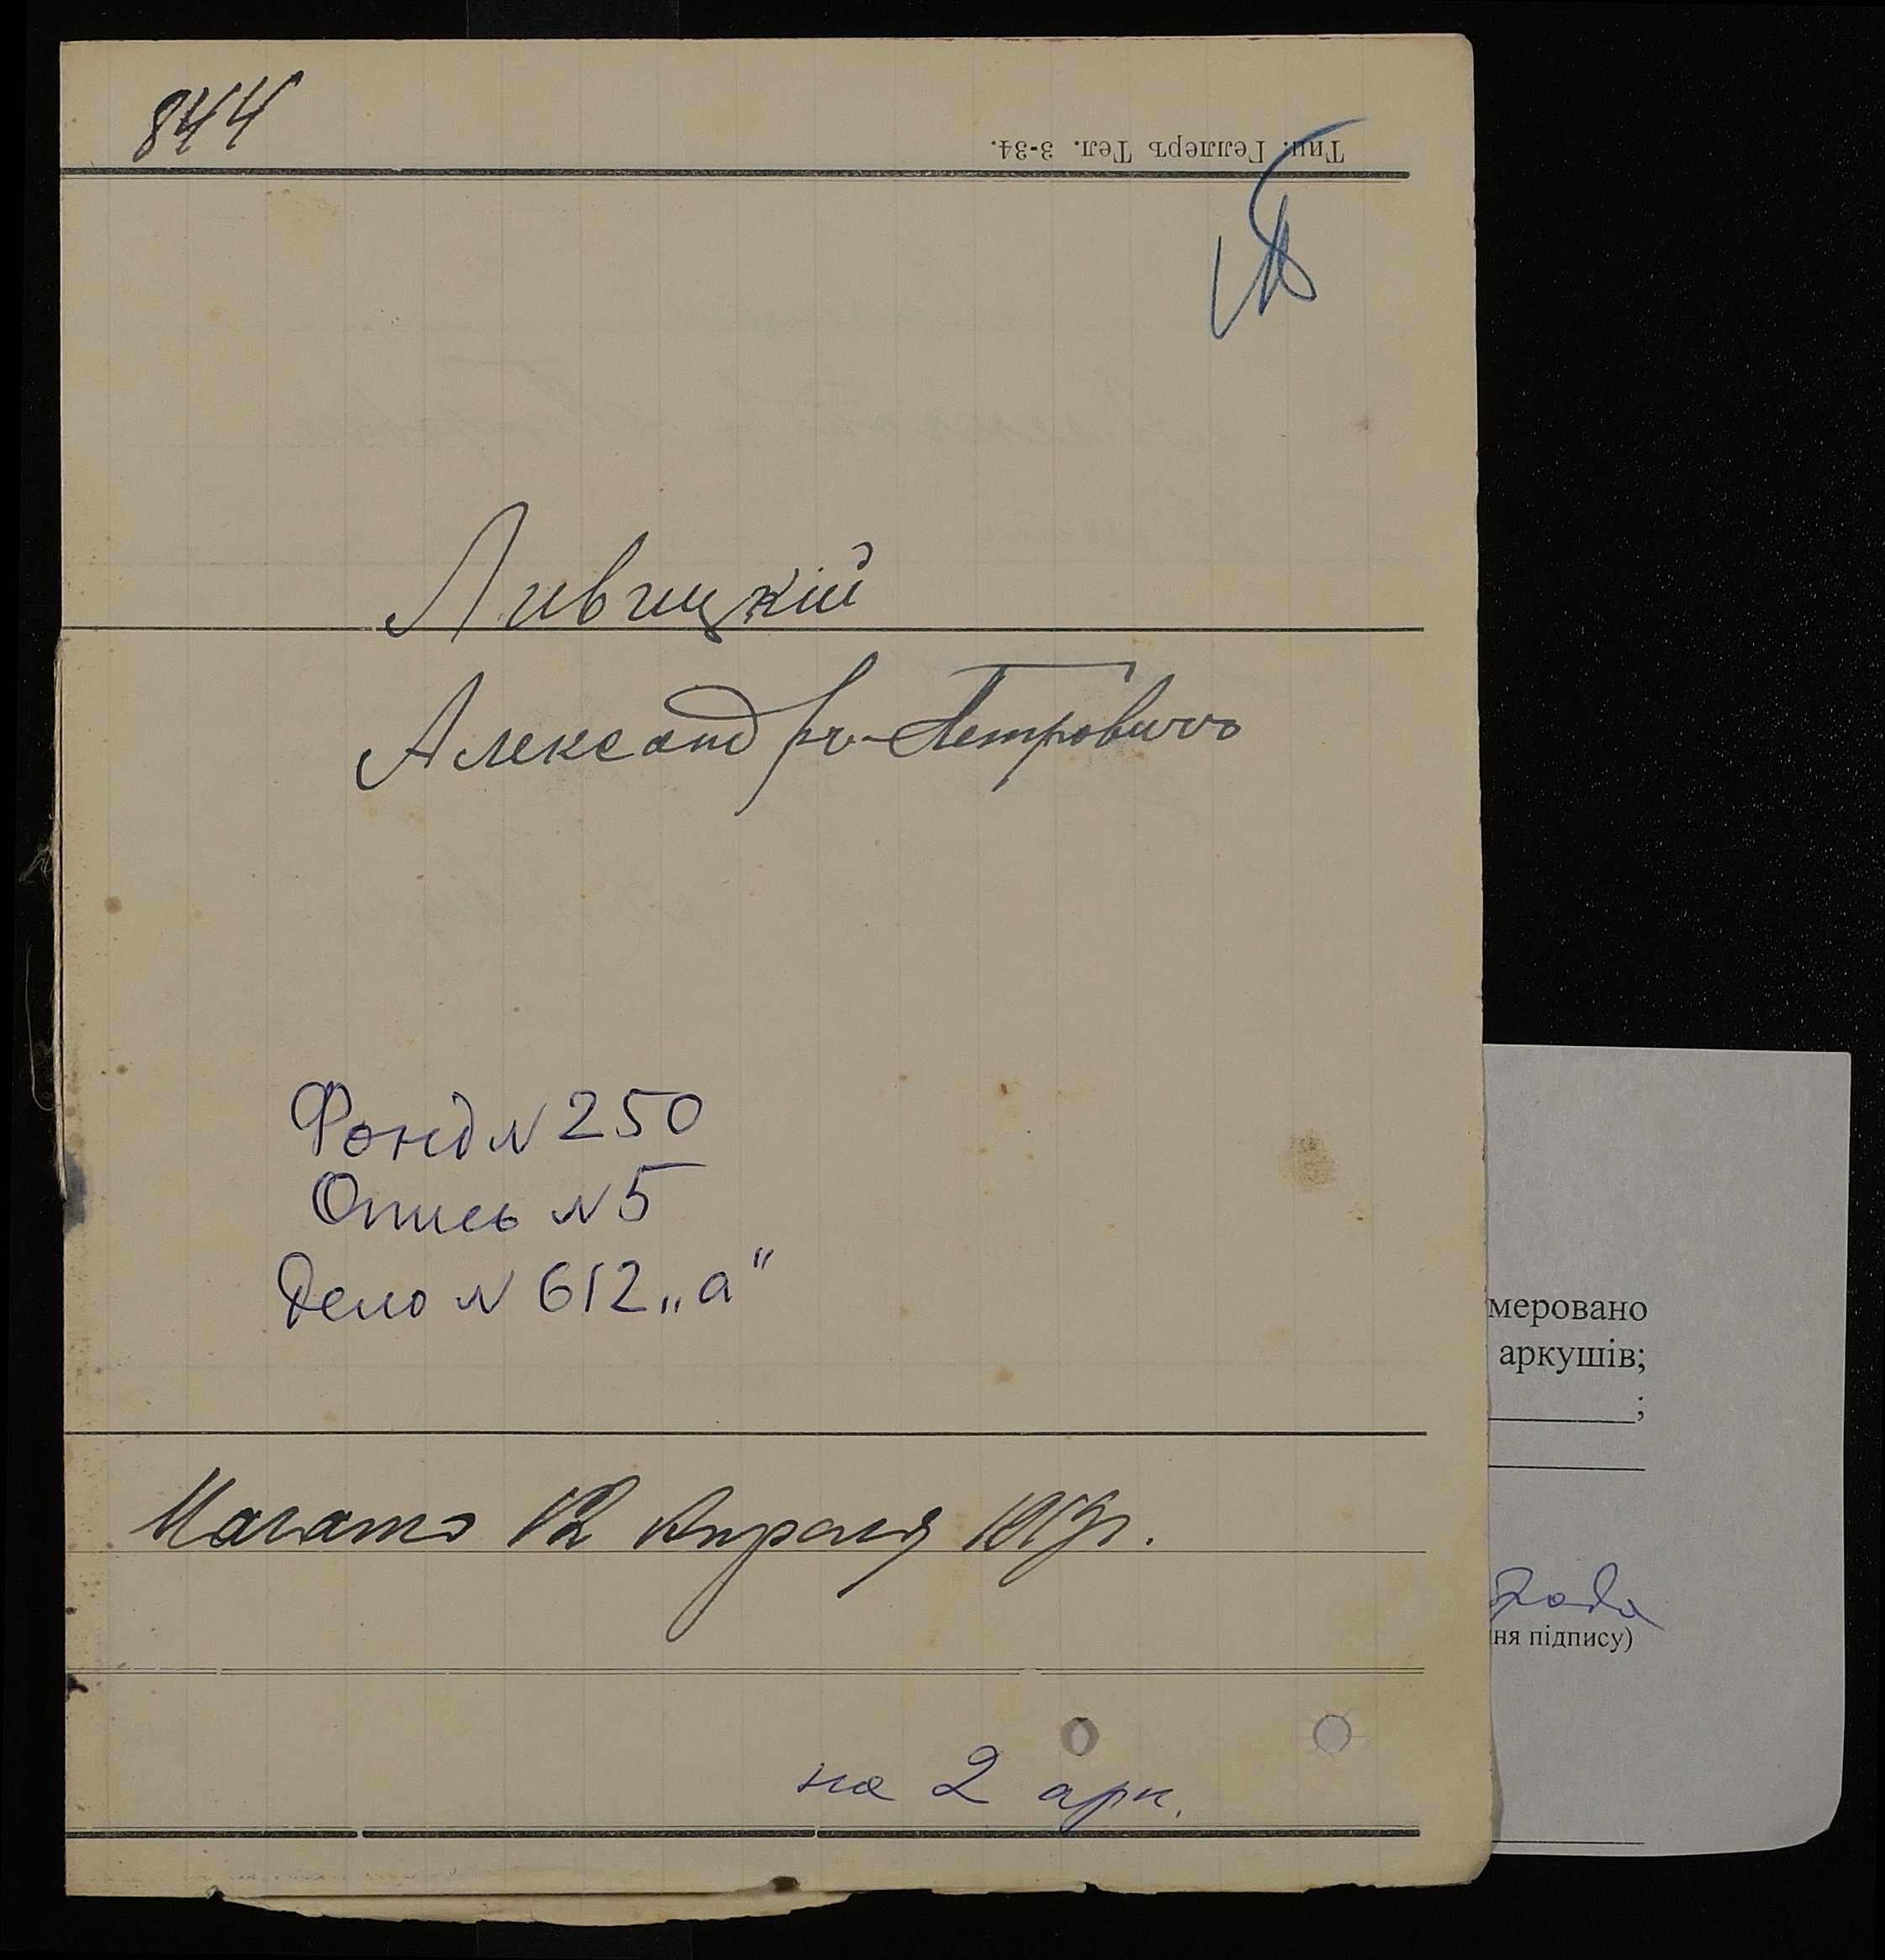 844
Тип. Геллеръ Тел. 3-34.
Ливицкій
Александръ Петровичъ
Фонд N 250
Опись N 5
Дело N 612 „а"
Начато 12 Апреля
на 2 арк.
меровано
аркушів;
;
ня підпису)